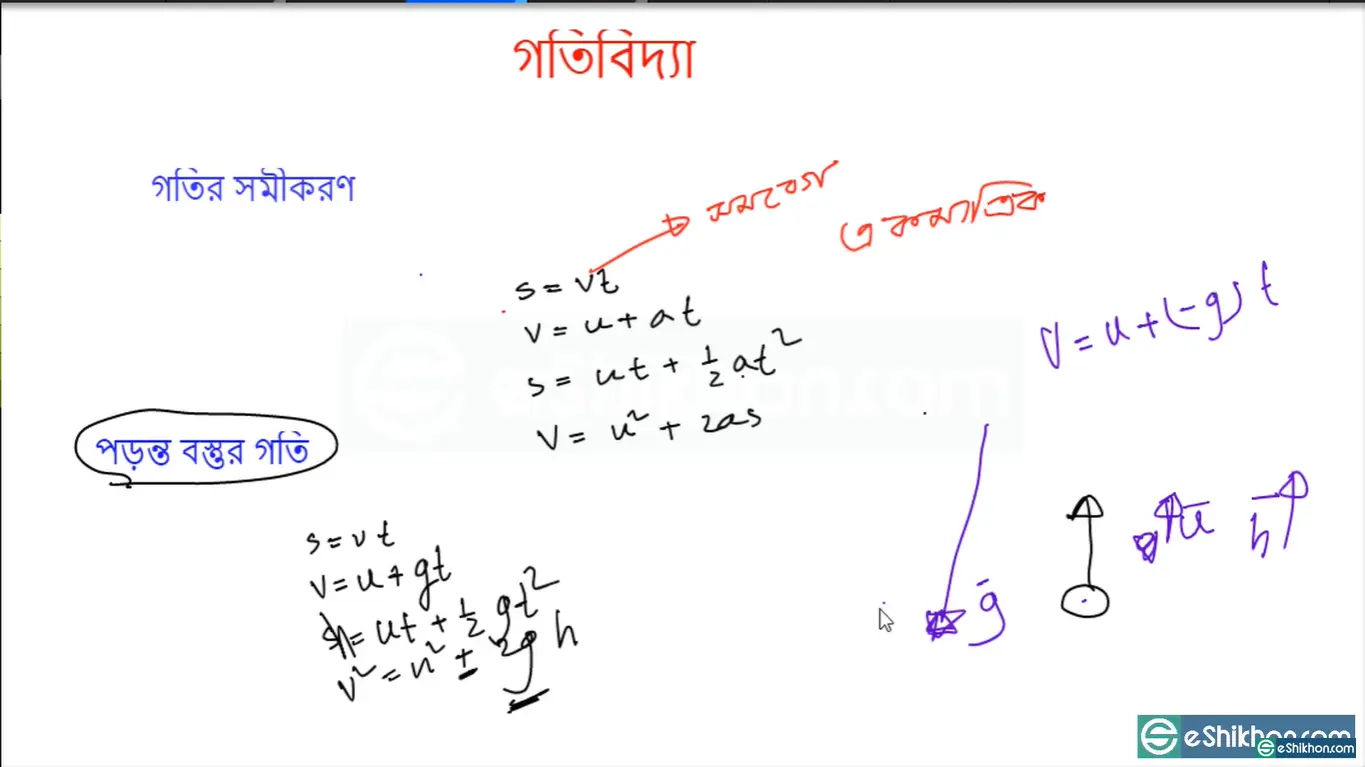 গতিবিদ্যা
গতির সমীকরণ
সমবেগ
একমাত্রিক
s = vt
v = u + at
s = ut + 1/2 at²
v = u² + 2as
v = u + (-g) t
পড়ন্ত বস্তুর গতি
s = vt
v = u + gt
h = ut + 1/2 gt²
v² = u² ± 2gh
g
u
h
eShikhon.com
eShikhon.com
eShikhon.com